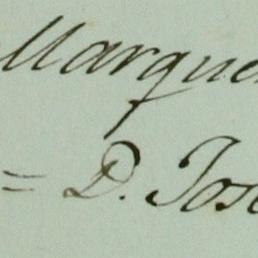 Marque
= D. Jos